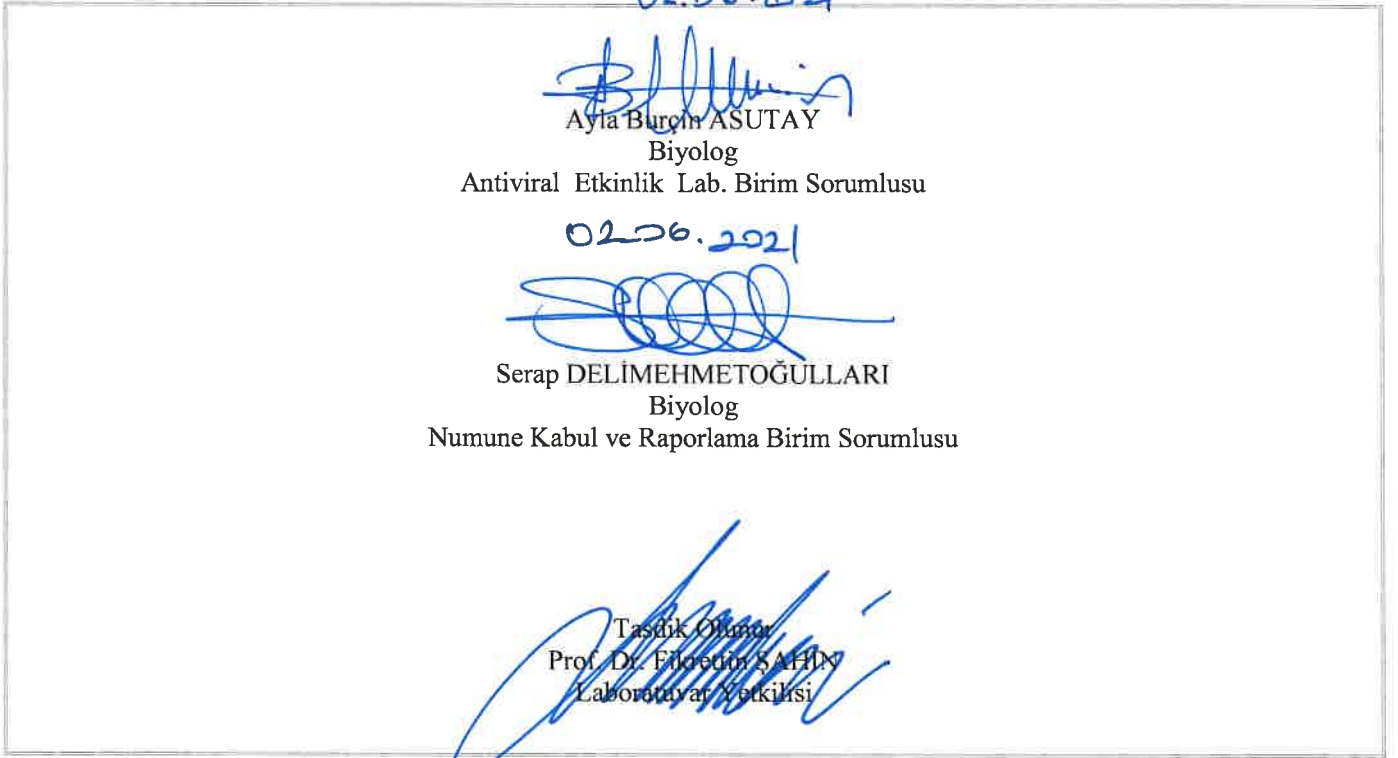 02.06.2021
Ayla Burçin ASUTAY
Biyolog
Antiviral Etkinlik Lab. Birim Sorumlusu
02.06.2021
Serap DELİMEHMETOĞULLARI
Biyolog
Numune Kabul ve Raporlama Birim Sorumlusu
Tasdik Olunur
Prof. Dr. Fikrettin ŞAHİN
Laboratuvar Yetkilisi